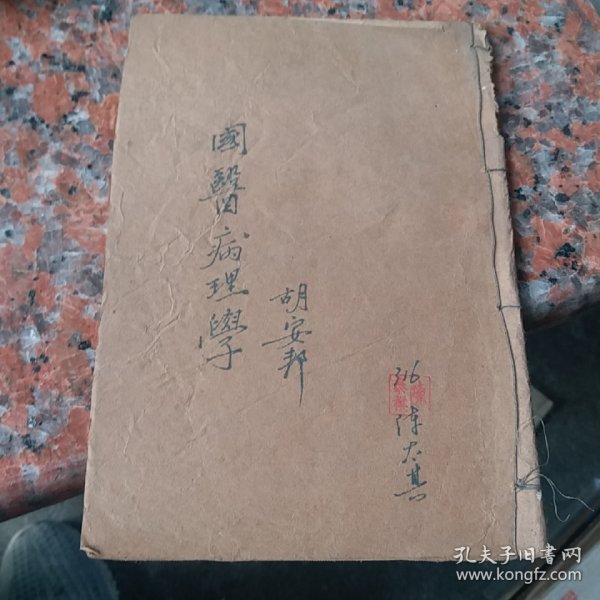 國醫病理學
胡安邦
316
陳太其
孔夫子旧书网
www.kongfz.com